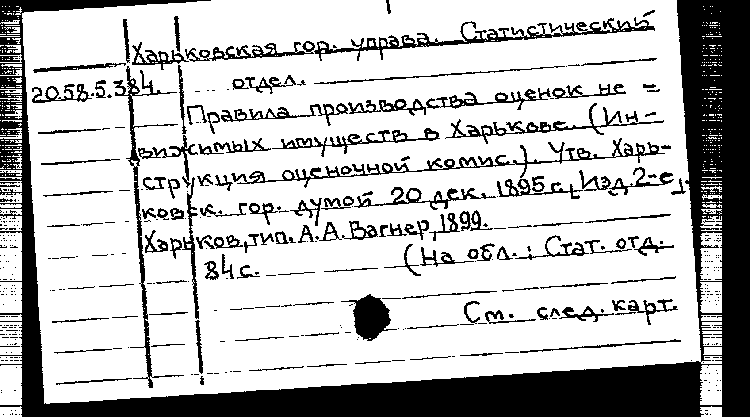 Харьковская гор. управа. Статистический
20.58.5.384. отдел.
Правила производства оценок не =
вижимых имуществ в Харькове. (Ин-
струкция оценочной комис.). Утв. Харь-
ковск. гор. думой 20 дек. 1895 г. [Изд. 2-е].
Харьков, тип. А.А. Вагнер, 1899.
84 с. (На обл.: Стат. отд.
См. след. карт.